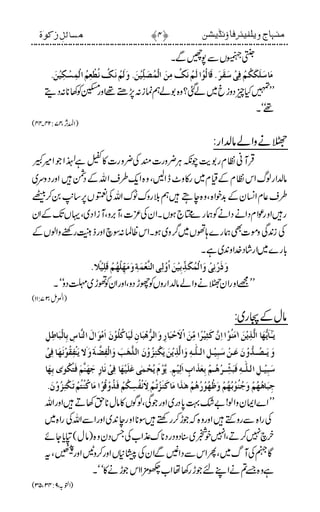 منہاج ویلفیئرفاؤنڈیشن ﴿۴﴾ مسائل زکوۃ
جنتی جہنمیوں سے پوچھیں گے۔
مَا سَلَكَكُمْ فِىْ سَقَرَ. قَالُوْا لَمْ نَكُ مِنَ الْمُصَلِّيْنَ. وَلَمْ نَكُ نُطْعِمُ الْمِسْكِيْنَ.
’’تمہیں کیا چیز دوزخ میں لے گئی؟ وہ بولے ہم نماز نہ پڑھتے تھے اور مسکین کو کھانا نہ دیتے
تھے‘‘۔
(المدثر، ۷۴: ۴۲-۴۴)
جھٹلانے والے مالدار:
قرآنی نظام ربوبیت چونکہ ہر ضرورت مند کی ضرورت کا کفیل ہے لہٰذا جو امیر کبیر
مالدار لوگ اس نظام کے قیام میں رکاوٹ ڈالیں، وہ ایک طرف اللہ کے دشمن ہیں اور دوسری
طرف عام انسان کے بدخواہ، وہ چاہتے ہیں ہم بلا روک ٹوک اللہ کی نعمتوں پر سانپ بن کر بیٹھے
رہیں اور عوام دانے دانے کو ہمارے محتاج ہوں۔ ان کی عزت، آبرو، آزادی، یہاں تک کے ان
کی زندگی و موت بھی ہمارے ہاتھوں میں گروی ہو۔ اس ظالمانہ سوچ اور ذہنیت رکھنے والوں کے
بارے میں ارشاد خداوندی ہے۔
وَذَرْنِىْ وَالْمُكَذِّبِيْنَ اُولِى النَّعْمَةِ وَمَهِّلْهُمْ قَلِيْلًا.
’’مجھے اور ان جھٹلانے والے مالداروں کو چھوڑ دو، اور ان کو تھوڑی مہلت دو‘‘۔
(المزمل، ۷۳: ۱۱)
مال کے پجاری:
يٰاَيُّهَا الَّذِيْنَ اٰمَنُوْا اِنَّ كَثِيْرًا مِّنَ الْاَحْبَارِ وَالرُّهْبَانِ لَيَاْكُلُوْنَ اَمْوَالَ النَّاسِ بِالْبَاطِلِ
وَيَصُدُّوْنَ عَنْ سَبِيْلِ اللهِ وَالَّذِيْنَ يَكْنِزُوْنَ الذَّهَبَ وَالْفِضَّةَ وَلَا يُنْفِقُوْنَهَا فِىْ
سَبِيْلِ اللهِ فَبَشِّرْهُمْ بِعَذَابٍ اَلِيْمٍ. يَّوْمَ يُحْمٰى عَلَيْهَا فِىْ نَارِ جَهَنَّمَ فَتُكْوٰى بِهَا
جِبَاهُهُمْ وَجُنُوْبُهُمْ وَظُهُوْرُهُمْ هٰذَا مَا كَنَزْتُمْ لِاَنْفُسِكُمْ فَذُوْقُوْا مَا كُنْتُمْ تَكْنِزُوْنَ.
’’اے ایمان والو! بے شک بہت پادری اور جوگی، لوگوں کا مال ناحق کھاتے ہیں اور اللہ
کی راہ سے روکتے ہیں اور وہ کہ جوڑ کر رکھتے ہیں سونا اور چاندی اور اسے اللہ کی راہ میں
خرچ نہیں کرتے، انہیں خوشخبری سنا دو دردناک عذاب کی جس دن وہ (مال) تپایا جائے
گا جہنم کی آگ میں، پھر اس سے داغیں گے ان کی پیشانیاں اور کروٹیں اور پیٹھیں، یہ
ہے وہ جسے تم نے اپنے لئے جوڑ رکھا تھا اب چکھو مزا اس جوڑنے کا‘‘۔
(التوبہ، ۹: ۳۴، ۳۵)